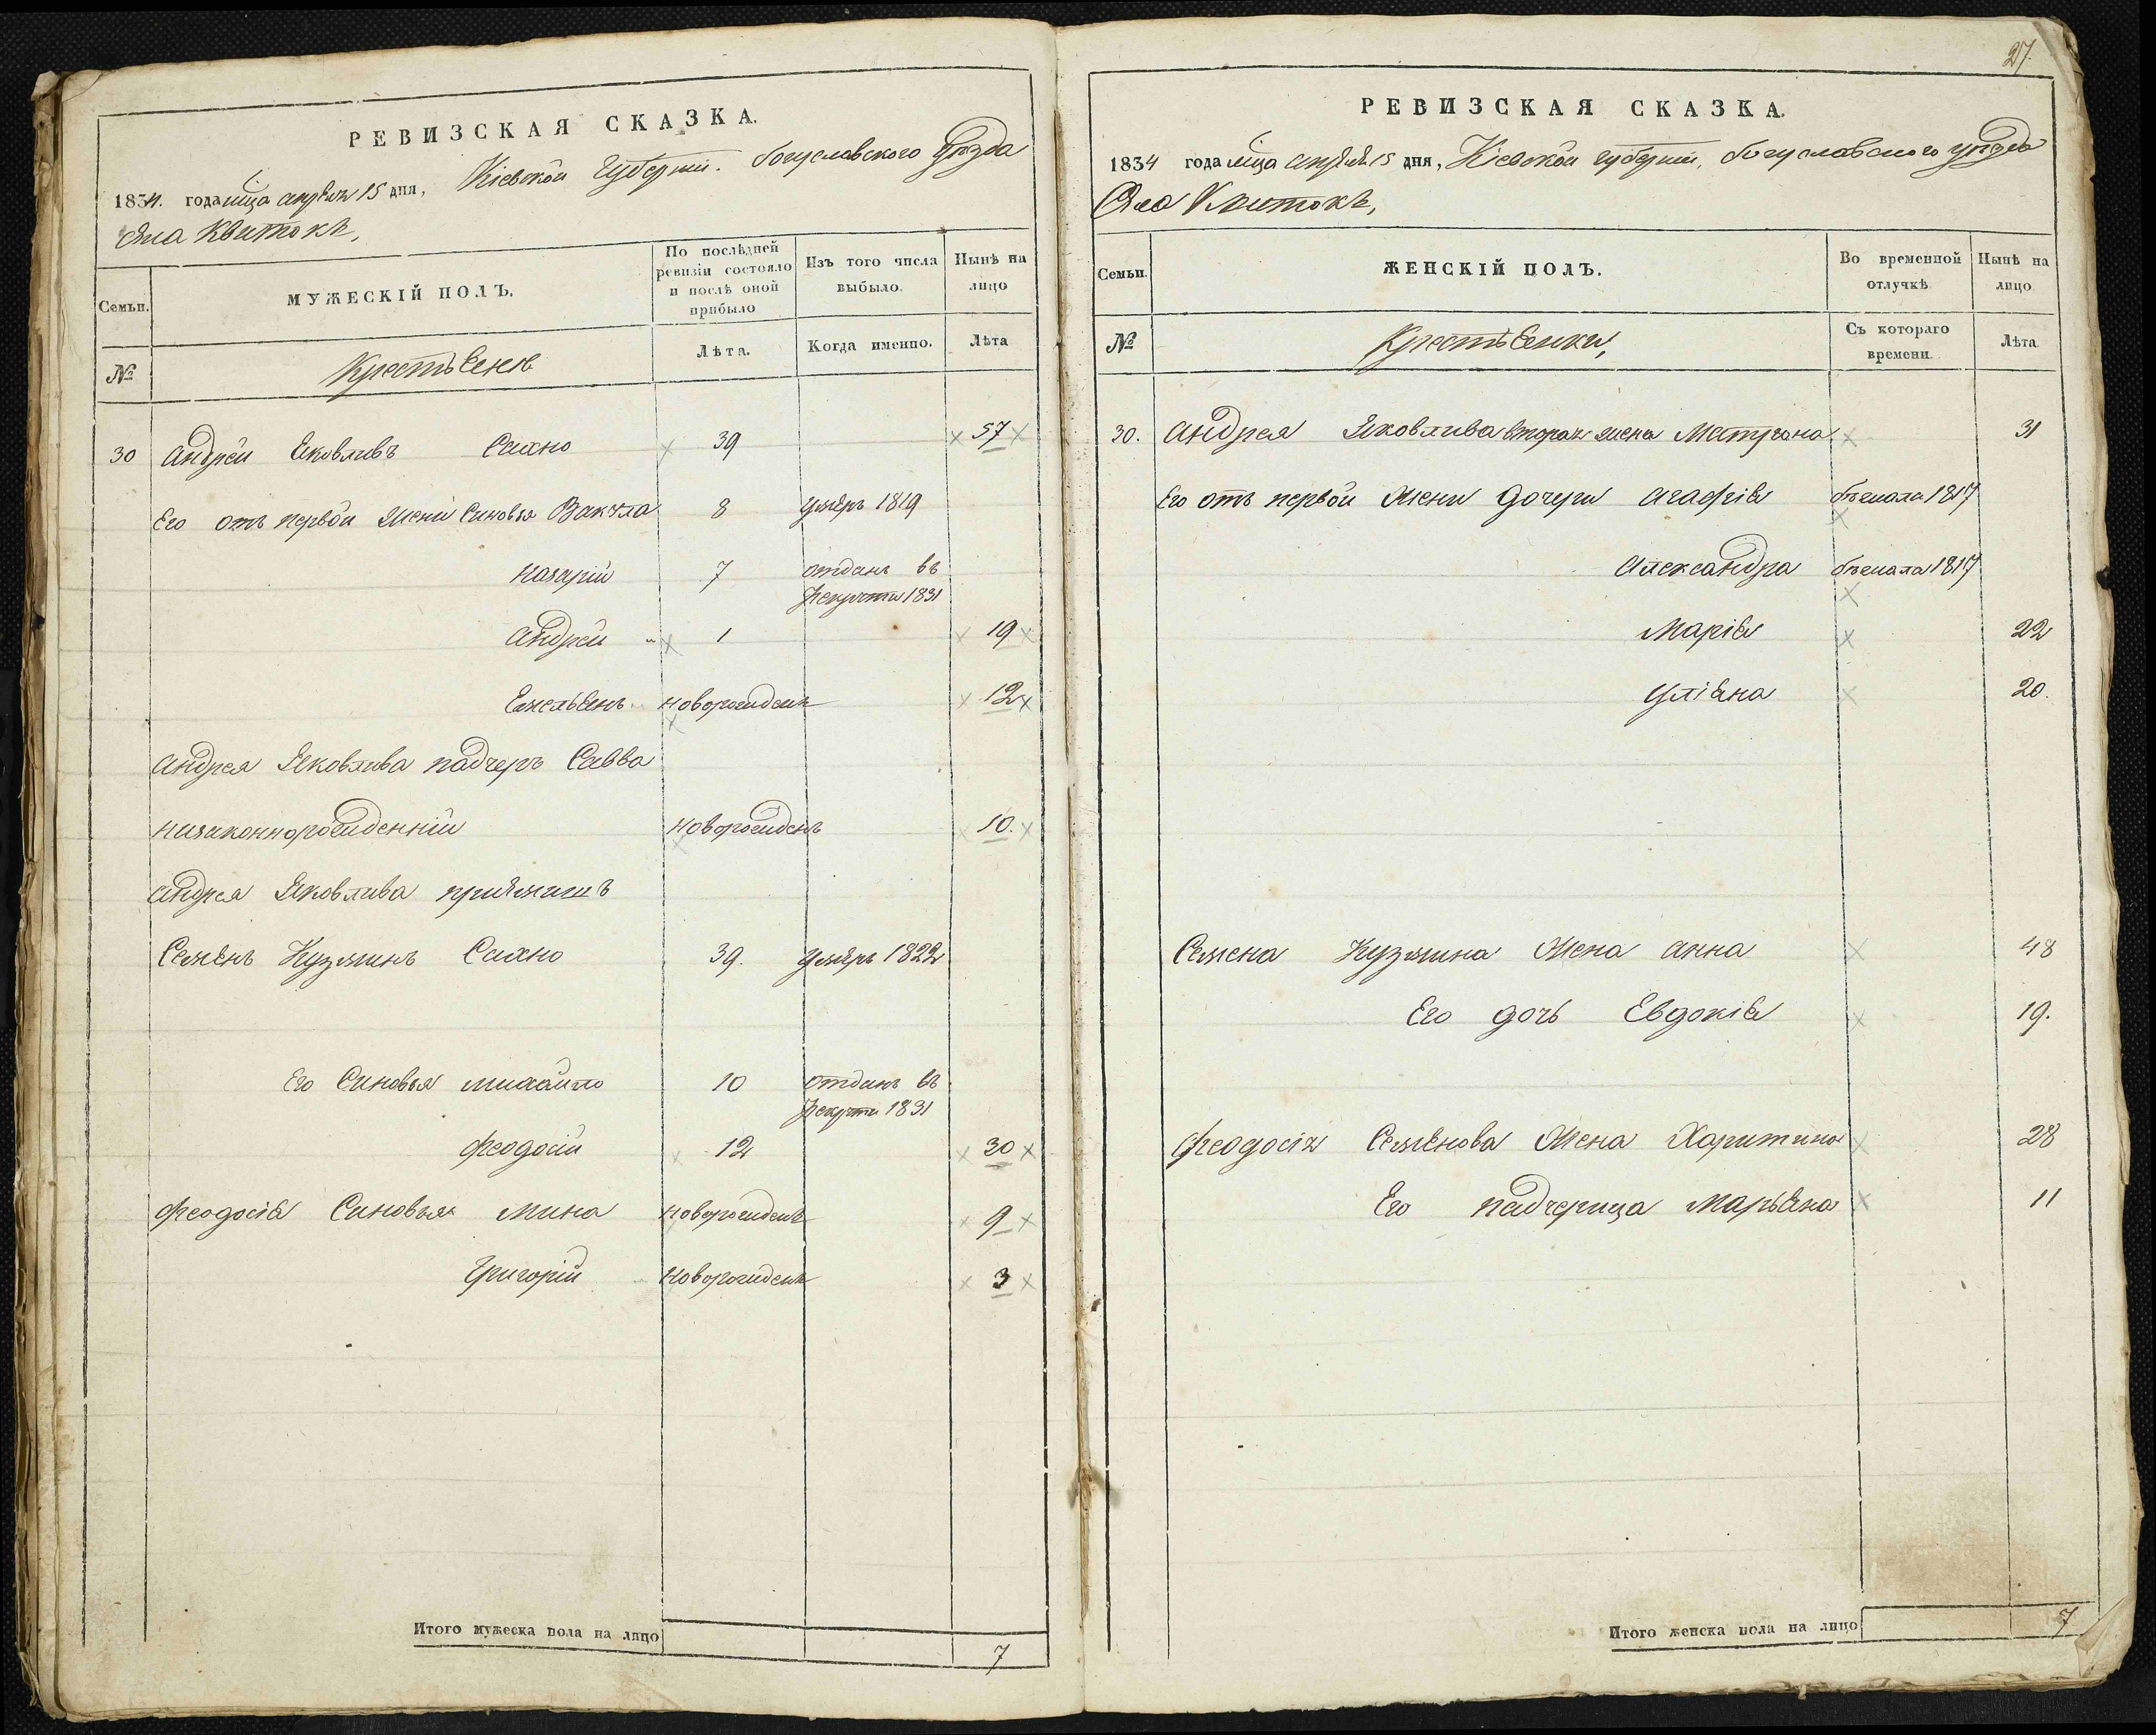 РЕВИЗСКАЯ СКАЗКА.
1834. года мца апреля 15 дня, Кіевской Губерніи. богуславского уезда
села Квитокъ,
Семьи.
МУЖЕСКІЙ ПОЛЪ.
По послѣдней ревизіи состояло и послѣ оной прибыло
Изъ того числа выбыло.
Нынѣ на лицо
№
Крестьяне
Лѣта.
Когда именно.
Лѣта
30 Андрей Яковлевъ Сахно 39 57
Его отъ первой жени Синовья Вакула 8 умеръ 1819
Назарій 7 отданъ въ
рекруты 1831
Андрей 1 19
Емельянъ новорожденъ 12
Андрея Яковлева падчеръ Савва
незаконнорожденній новорожденъ 10.
Андрея Яковлева
Семенъ Кузминъ Сахно 39. умеръ 1822
Его Синовья михайло 10 отданъ въ
рекруты 1831
феодосій 12 30
феодосія Синовья Мина новорожденъ 9
Григорій новорожденъ 3
Итого мужеска пола на лицо 7
27.
РЕВИЗСКАЯ СКАЗКА.
1834 года мца апреля 15 дня, Кіевской губерніи, богуславского уезда
Села Квитокъ,
Семьи.
ЖЕНСКІЙ ПОЛЪ.
Во временной отлучкѣ
Нынѣ на лицо
№
Крестьянки,
Съ котораго времени.
Лѣта
30. Андрея Яковлева вторая жена Матрона 31
Его отъ первой жени дочери Агафія бежала 1817
Александра бежала 1817
Марія 22
Уліяна 20.
Семена Кузмина жена Анна 48
Его дочь Евдокія 19.
феодосія Семенова жена Харитина 28
Его падчерица Марьяна 11
Итого женска пола на лицо 7